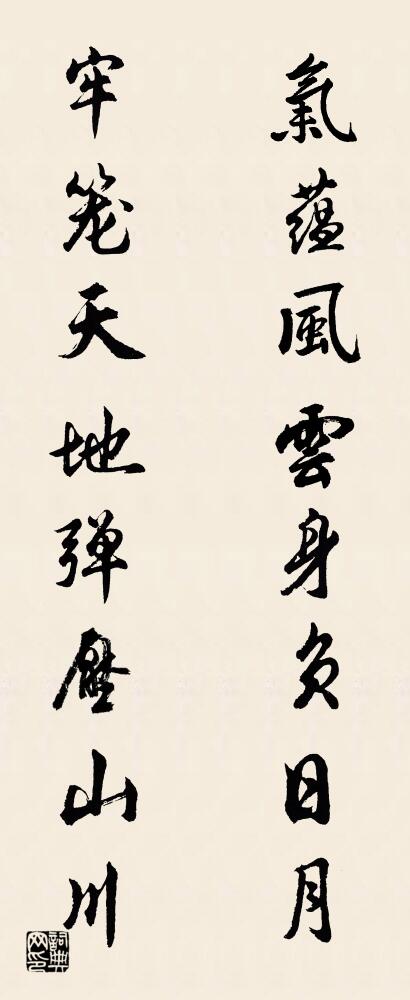 氣蘊風雲身負日月
牢笼天地弹壓山川
詞典網印